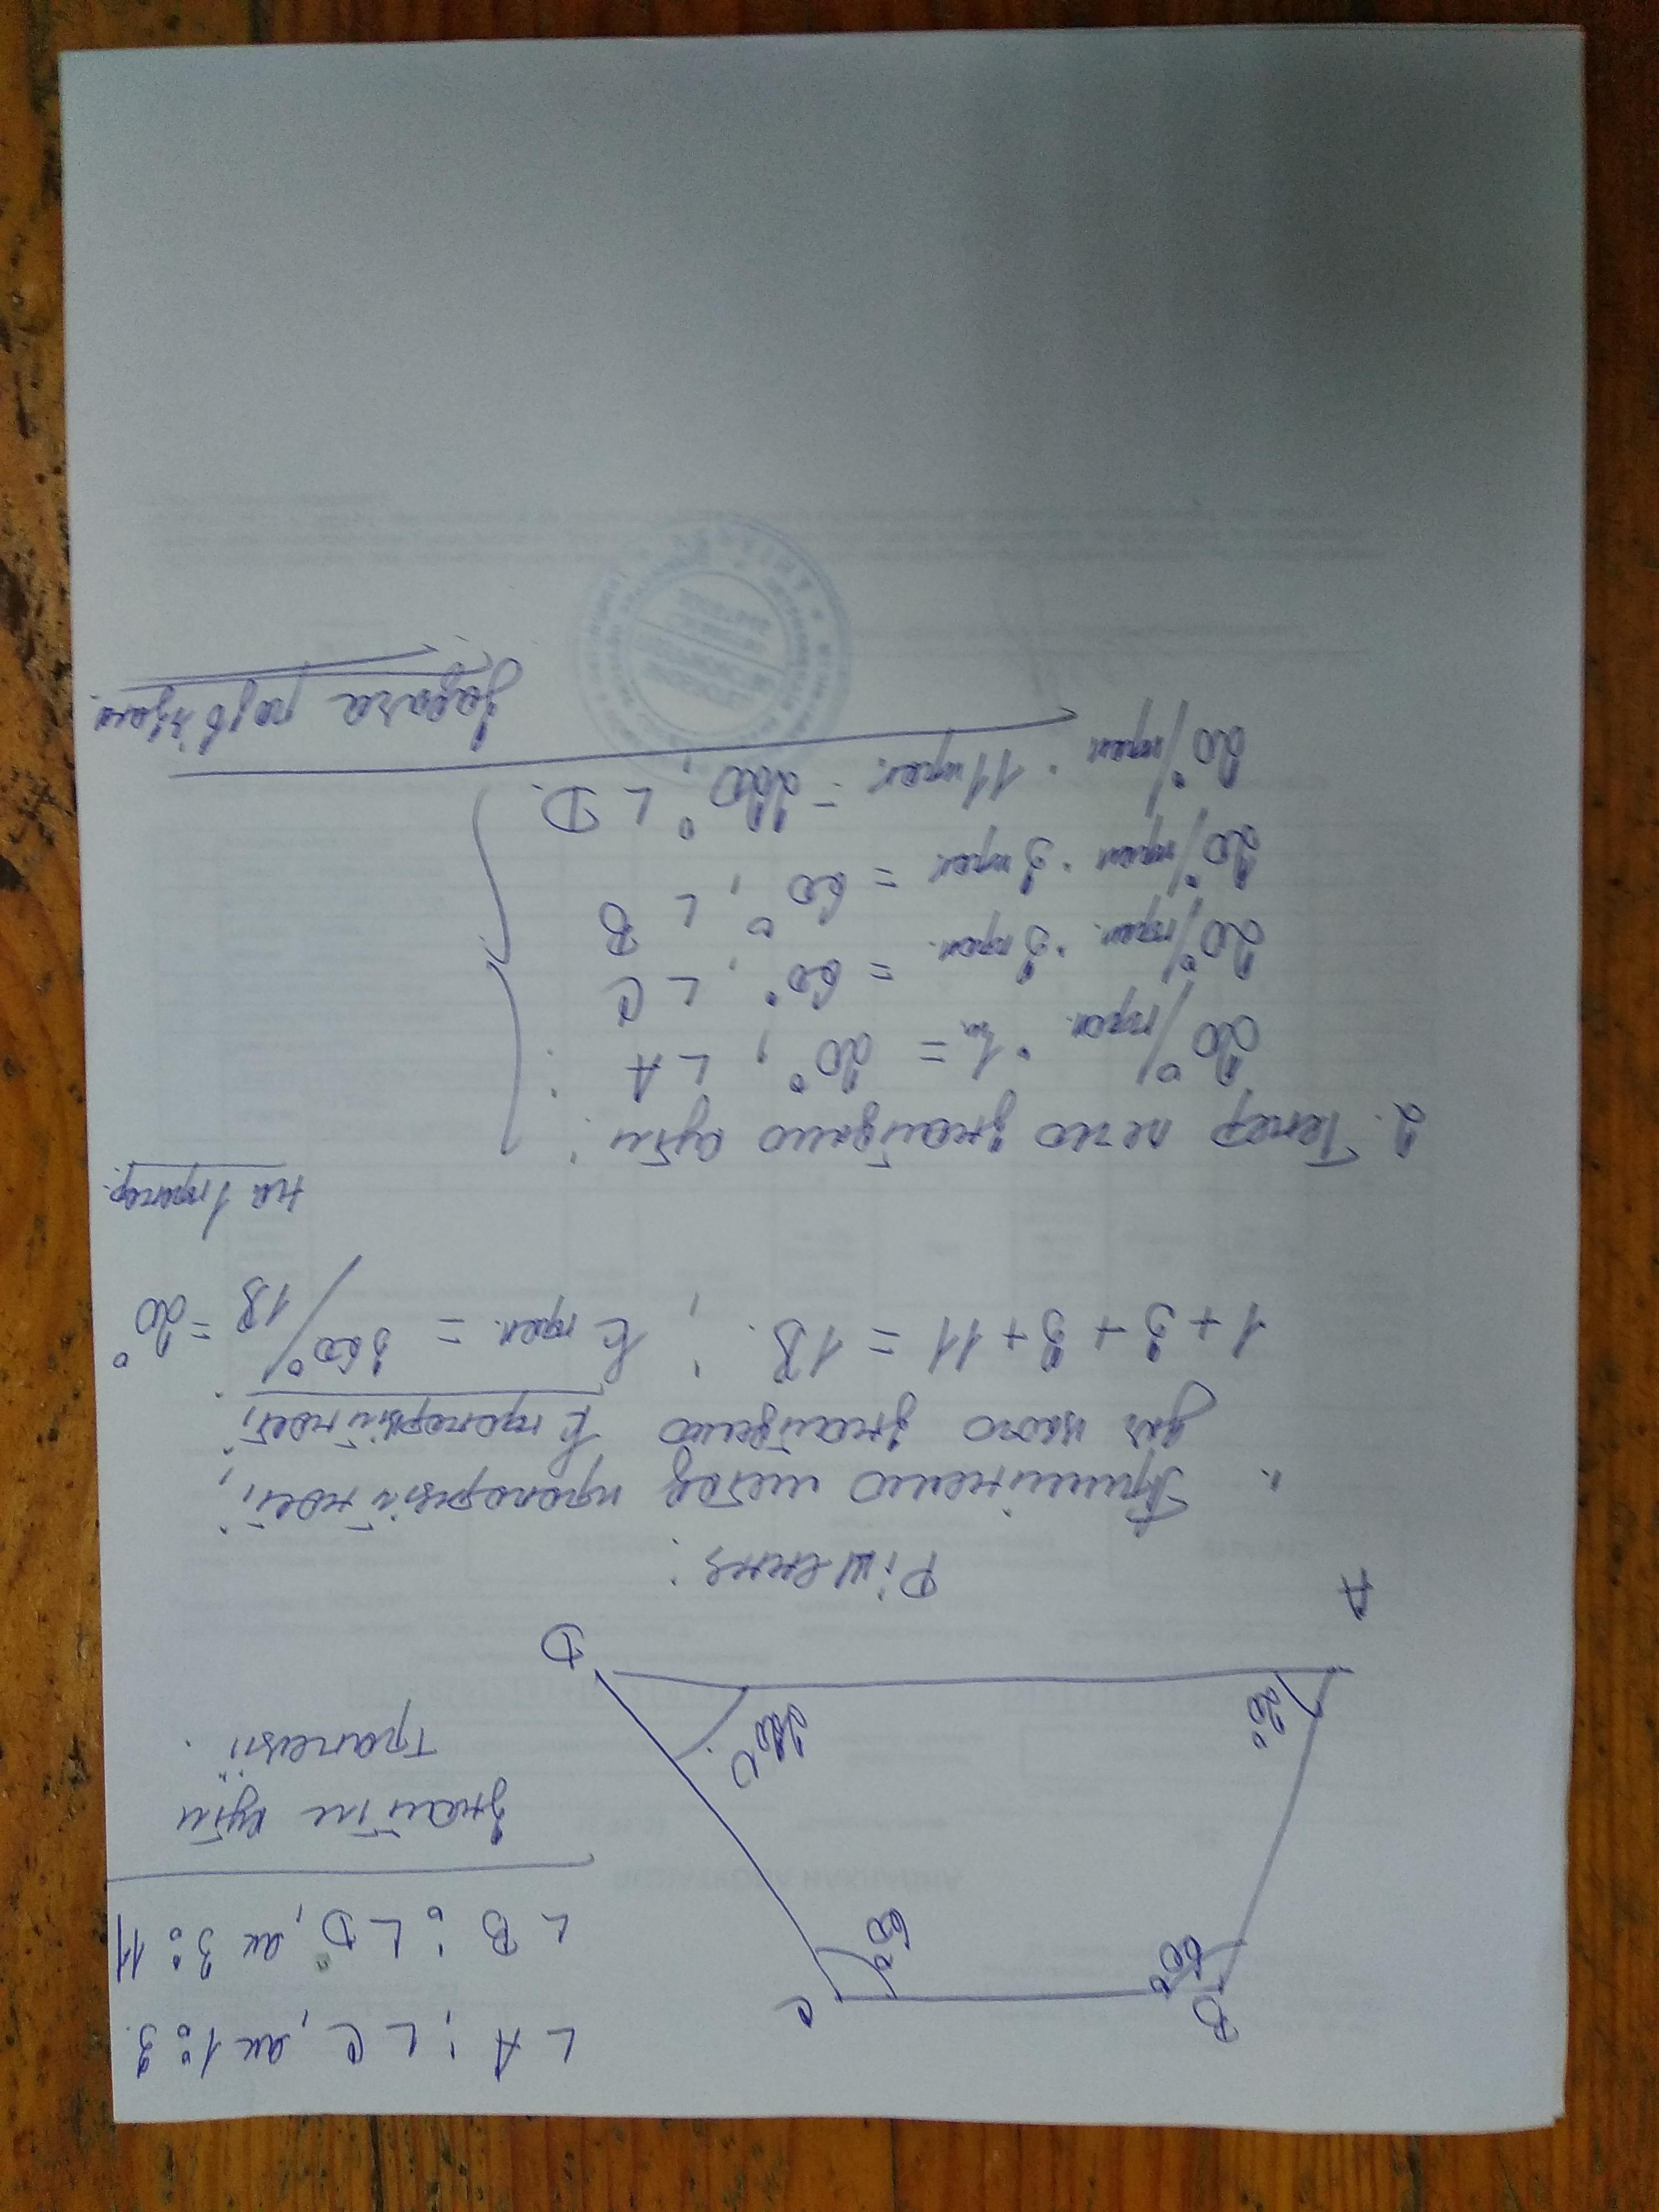 ∠A : ∠C, як 1:3.
∠B : ∠D, як 3:11
Знайти кути
трапеції.
B
C
60°
60°
20°
220
A
D
Рішення:
1. Примінемо метод пропорційності,
для цього знайдемо K пропорційності.
1 + 3 + 3 + 11 = 18. ; K проп. = 360°/18 = 20°
на 1 пропор.
2. Тепер легко знайдемо кути:
20°/проп. · 1 = 20°, ∠A
20°/проп. · 3 проп. = 60°, ∠C
20°/проп · 3 проп = 60°, ∠B
20°/проп · 11 проп. = 220°, ∠D.
Задача розв'язана.